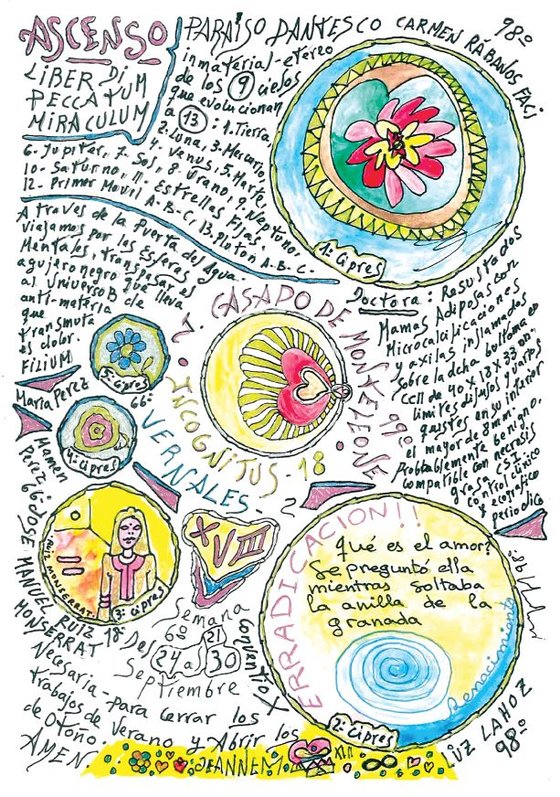 ASCENSO
LIBER DI
PECCATUM
MIRACULUM
PARAISO DANTESCO CARMEN RÁBANOS FACI
98º
inmaterial-etereo
de los 9 cielos
que evolucionan
a 13: 1. Tierra
2. Luna, 3. Mercurio,
4. Venus, 5. Marte
6. Jupiter, 7. Sol, 8. Urano, 9. Neptuno.
10. Saturno, 11. Estrellas Fijas.
12. Primer Movil A-B-C, 13. Pluton A-B-C.
1ª Cipres
A traves de la Puerta del Agua.
Viajamos por las Esferas
Mentales, transpasar el
agujero negro que lleva
al Universo B de
anti-materia
que
transmuta
el dolor.
FILIUM
5ª Cipres
66º
Maria Perez
1ª Cipres
Mamen
Perez 66º
CASADO DE MONTELEONE
99º
2. INCOGNITUS-18
VERNALES-
Doctora: Resustados
Mamas Adiposas con
Microcalcificaciones
y axilas inflamadas
sobre la dcha bultoma en
CCII de 40 x 18 x 33 con
limites difusos y varios
quistes en su inferior
el mayor de 8 mm. igno.
Probablemente benigno
compatible con necrosis
grasa C5T
control clinico
y ecografico
periodico
Ruiz Monserrat
3ª cipres
JOSE MANUEL RUIZ
MONSERRAT 18º
XVIII
ERRADICACION!!
Qué es el amor?
Se preguntó ella
mientras soltaba
la anilla de la
granada
Renacimiento
2ª Cipres
LUZ LAHOZ
98º
Semana
6º 21
Des 24 a 30
Septiembre
Necesaria-para Cerrar los
trabajos de Verano y Abrir los
de Otoño
AMEN
JEANNEM